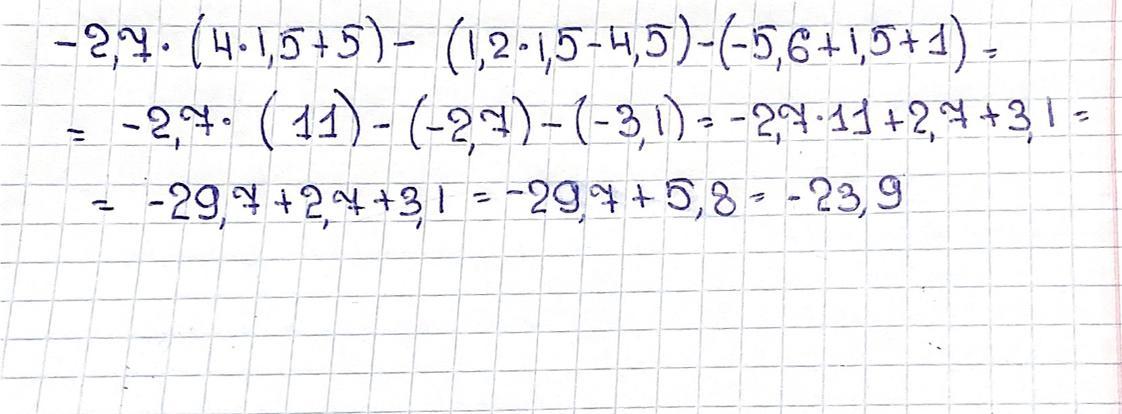 -2,7·(4·1,5+5)-(1,2·1,5-4,5)-(-5,6+1,5+1)=
= -2,7·(11)-(-2,7)-(-3,1)=-2,7·11+2,7+3,1=
= -29,7+2,7+3,1=-29,7+5,8=-23,9